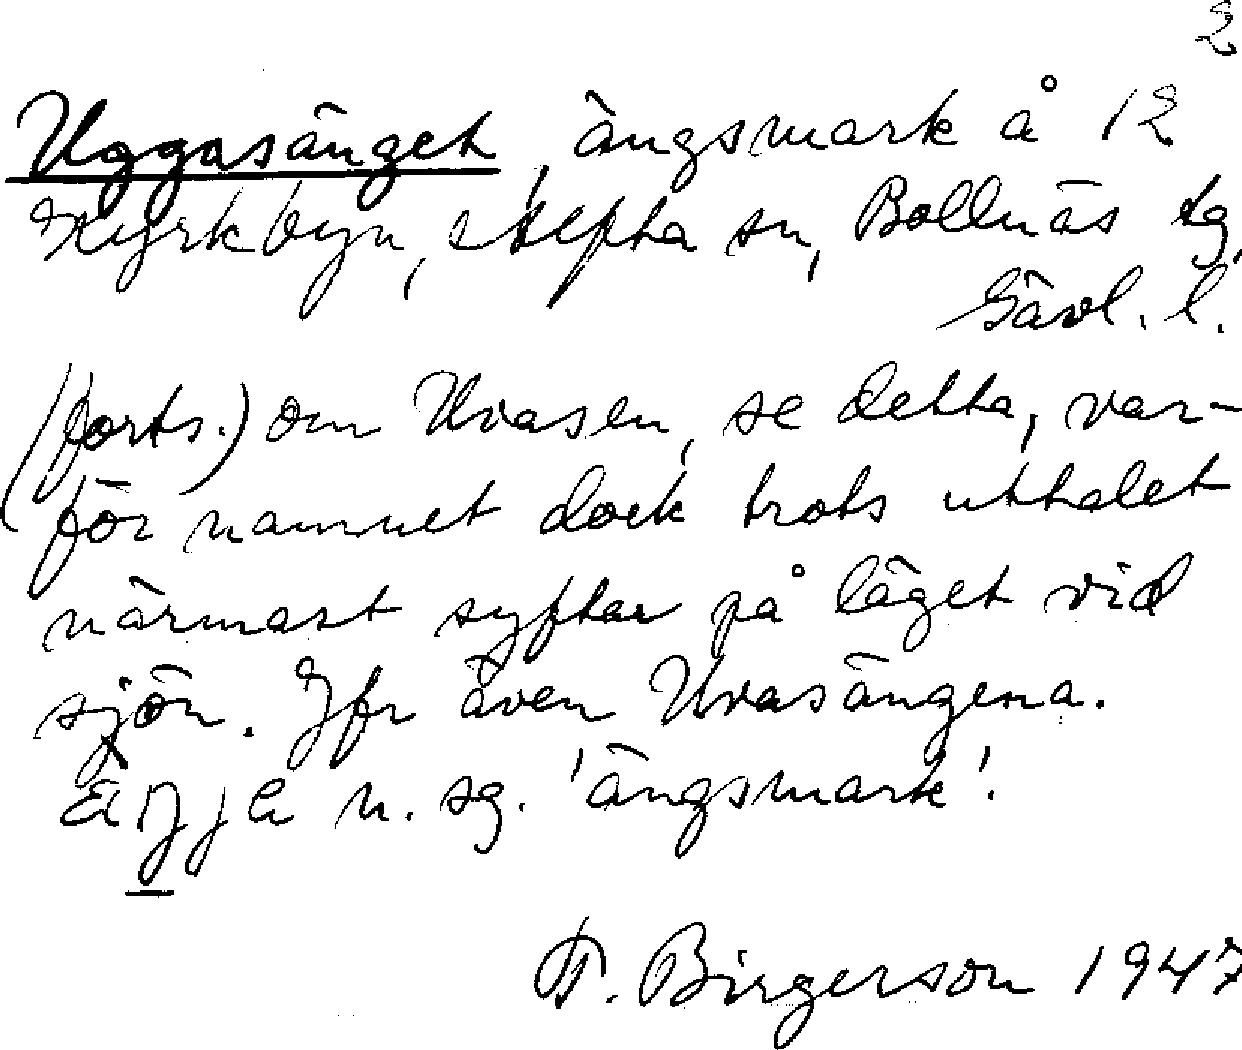 2
Uggasänget, ängsmark å 12
Kyrkbyn, Alfta sn, Bollnäs tg,
Gävl. l.
(forts.) om Uvasen, se detta, var-
för namnet dock trots uttalet
närmast syftar på läget vid
sjön. Jfr även Uvasängena.
n. sg. 'ängsmark'.
Birgerson 1947